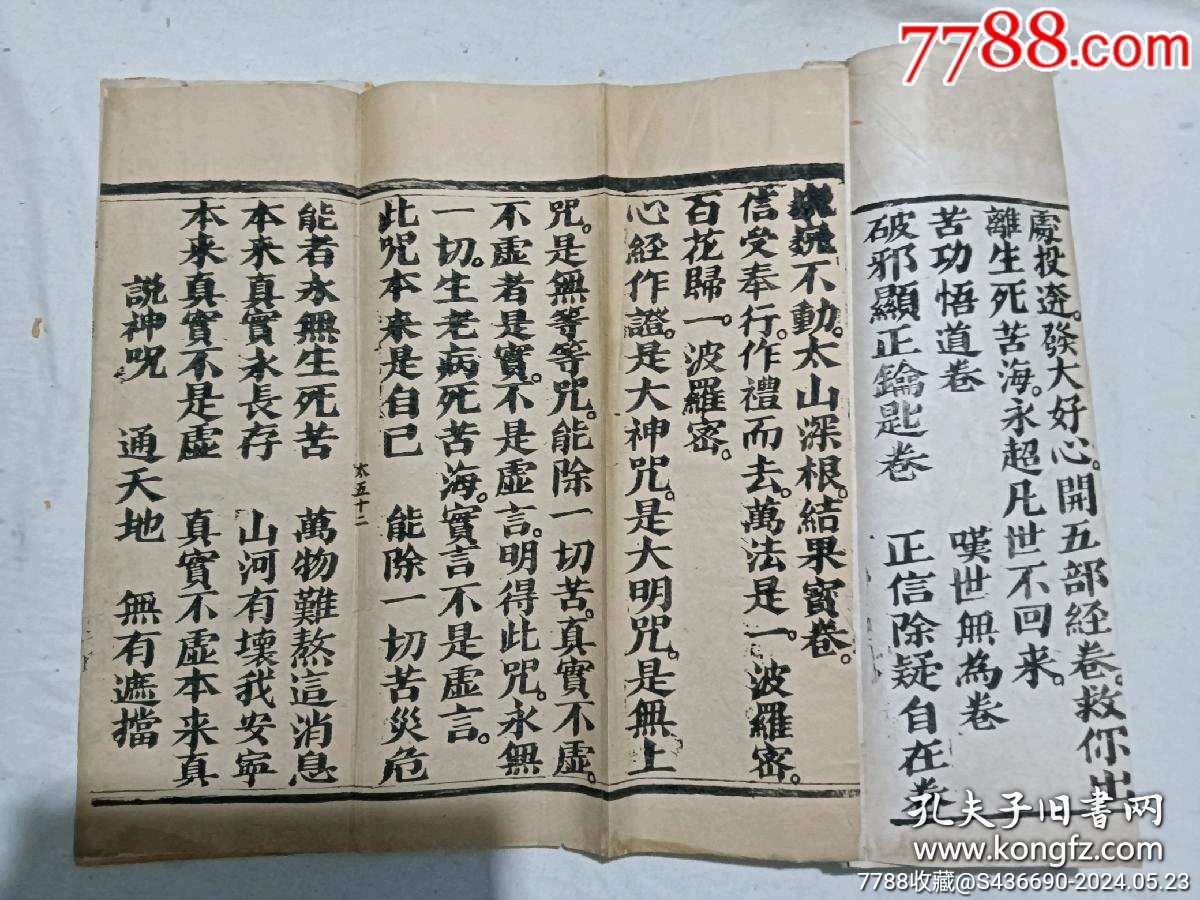 7788.com
處投迯。發大好心。開五部經卷。救你出
離生死苦海。永超凡世不回来。
苦功悟道卷 嘆世無為卷
破邪顯正鑰匙卷 正信除疑自在卷
巍巍不動。太山深根。結果寳卷。
信受奉行。作禮而去。萬法是一。波羅密。
百花歸一。波羅密。
心經作證。是大神咒。是大明咒。是無上
咒。是無等等咒。能除一切苦。真實不虚。
不虚者是實。不是虚言。明得此咒。永無
一切。生老病死苦海。實言不是虚言。
此咒本来是自己 能除一切苦災危
太五十二
能者永無生死苦 萬物難熬這消息
本来真實永長存 山河有壞我安寧
本来真實不是虚 真實不虚本来真
說神呪 通天地 無有遮擋
孔夫子旧書网
www.kongfz.com
7788收藏@S436690-2024.05.23